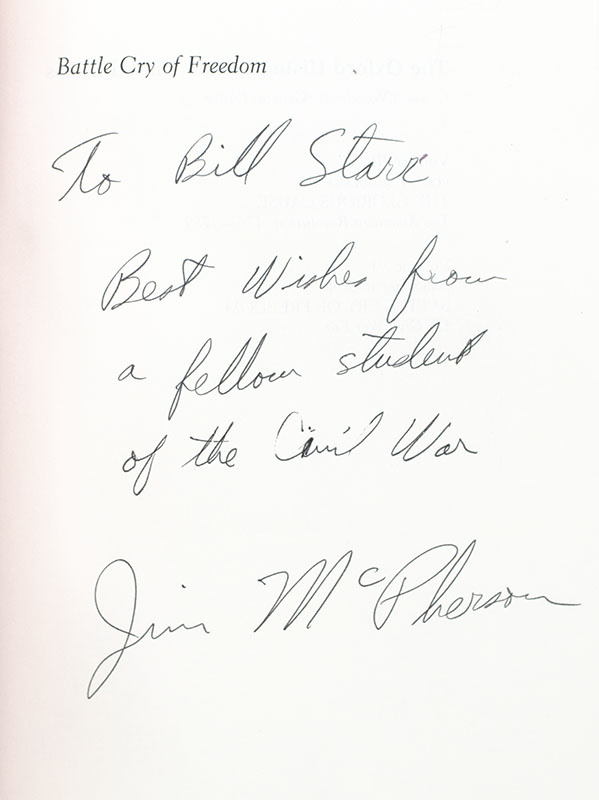 Battle Cry of Freedom
To Bill Starr
Best Wishes from
a fellow student
of the Civil War
Jim McPherson